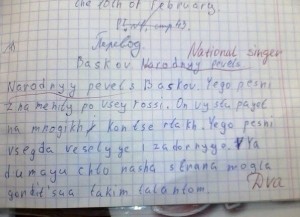 the 10th of February.
стр 43.
Перевод.
National singer
Baskov Narodnyy pevets
Narodnyy pevets Baskov. Yego pesni
znamenity po vsey rossi. On vystu payet
na mnogikh kontse rtakh. Yego pesni
vsegda veselyye i zadornyye. Ya
dumayu chto nasha strana mogla
gordit'saa takim talantom.
Dva